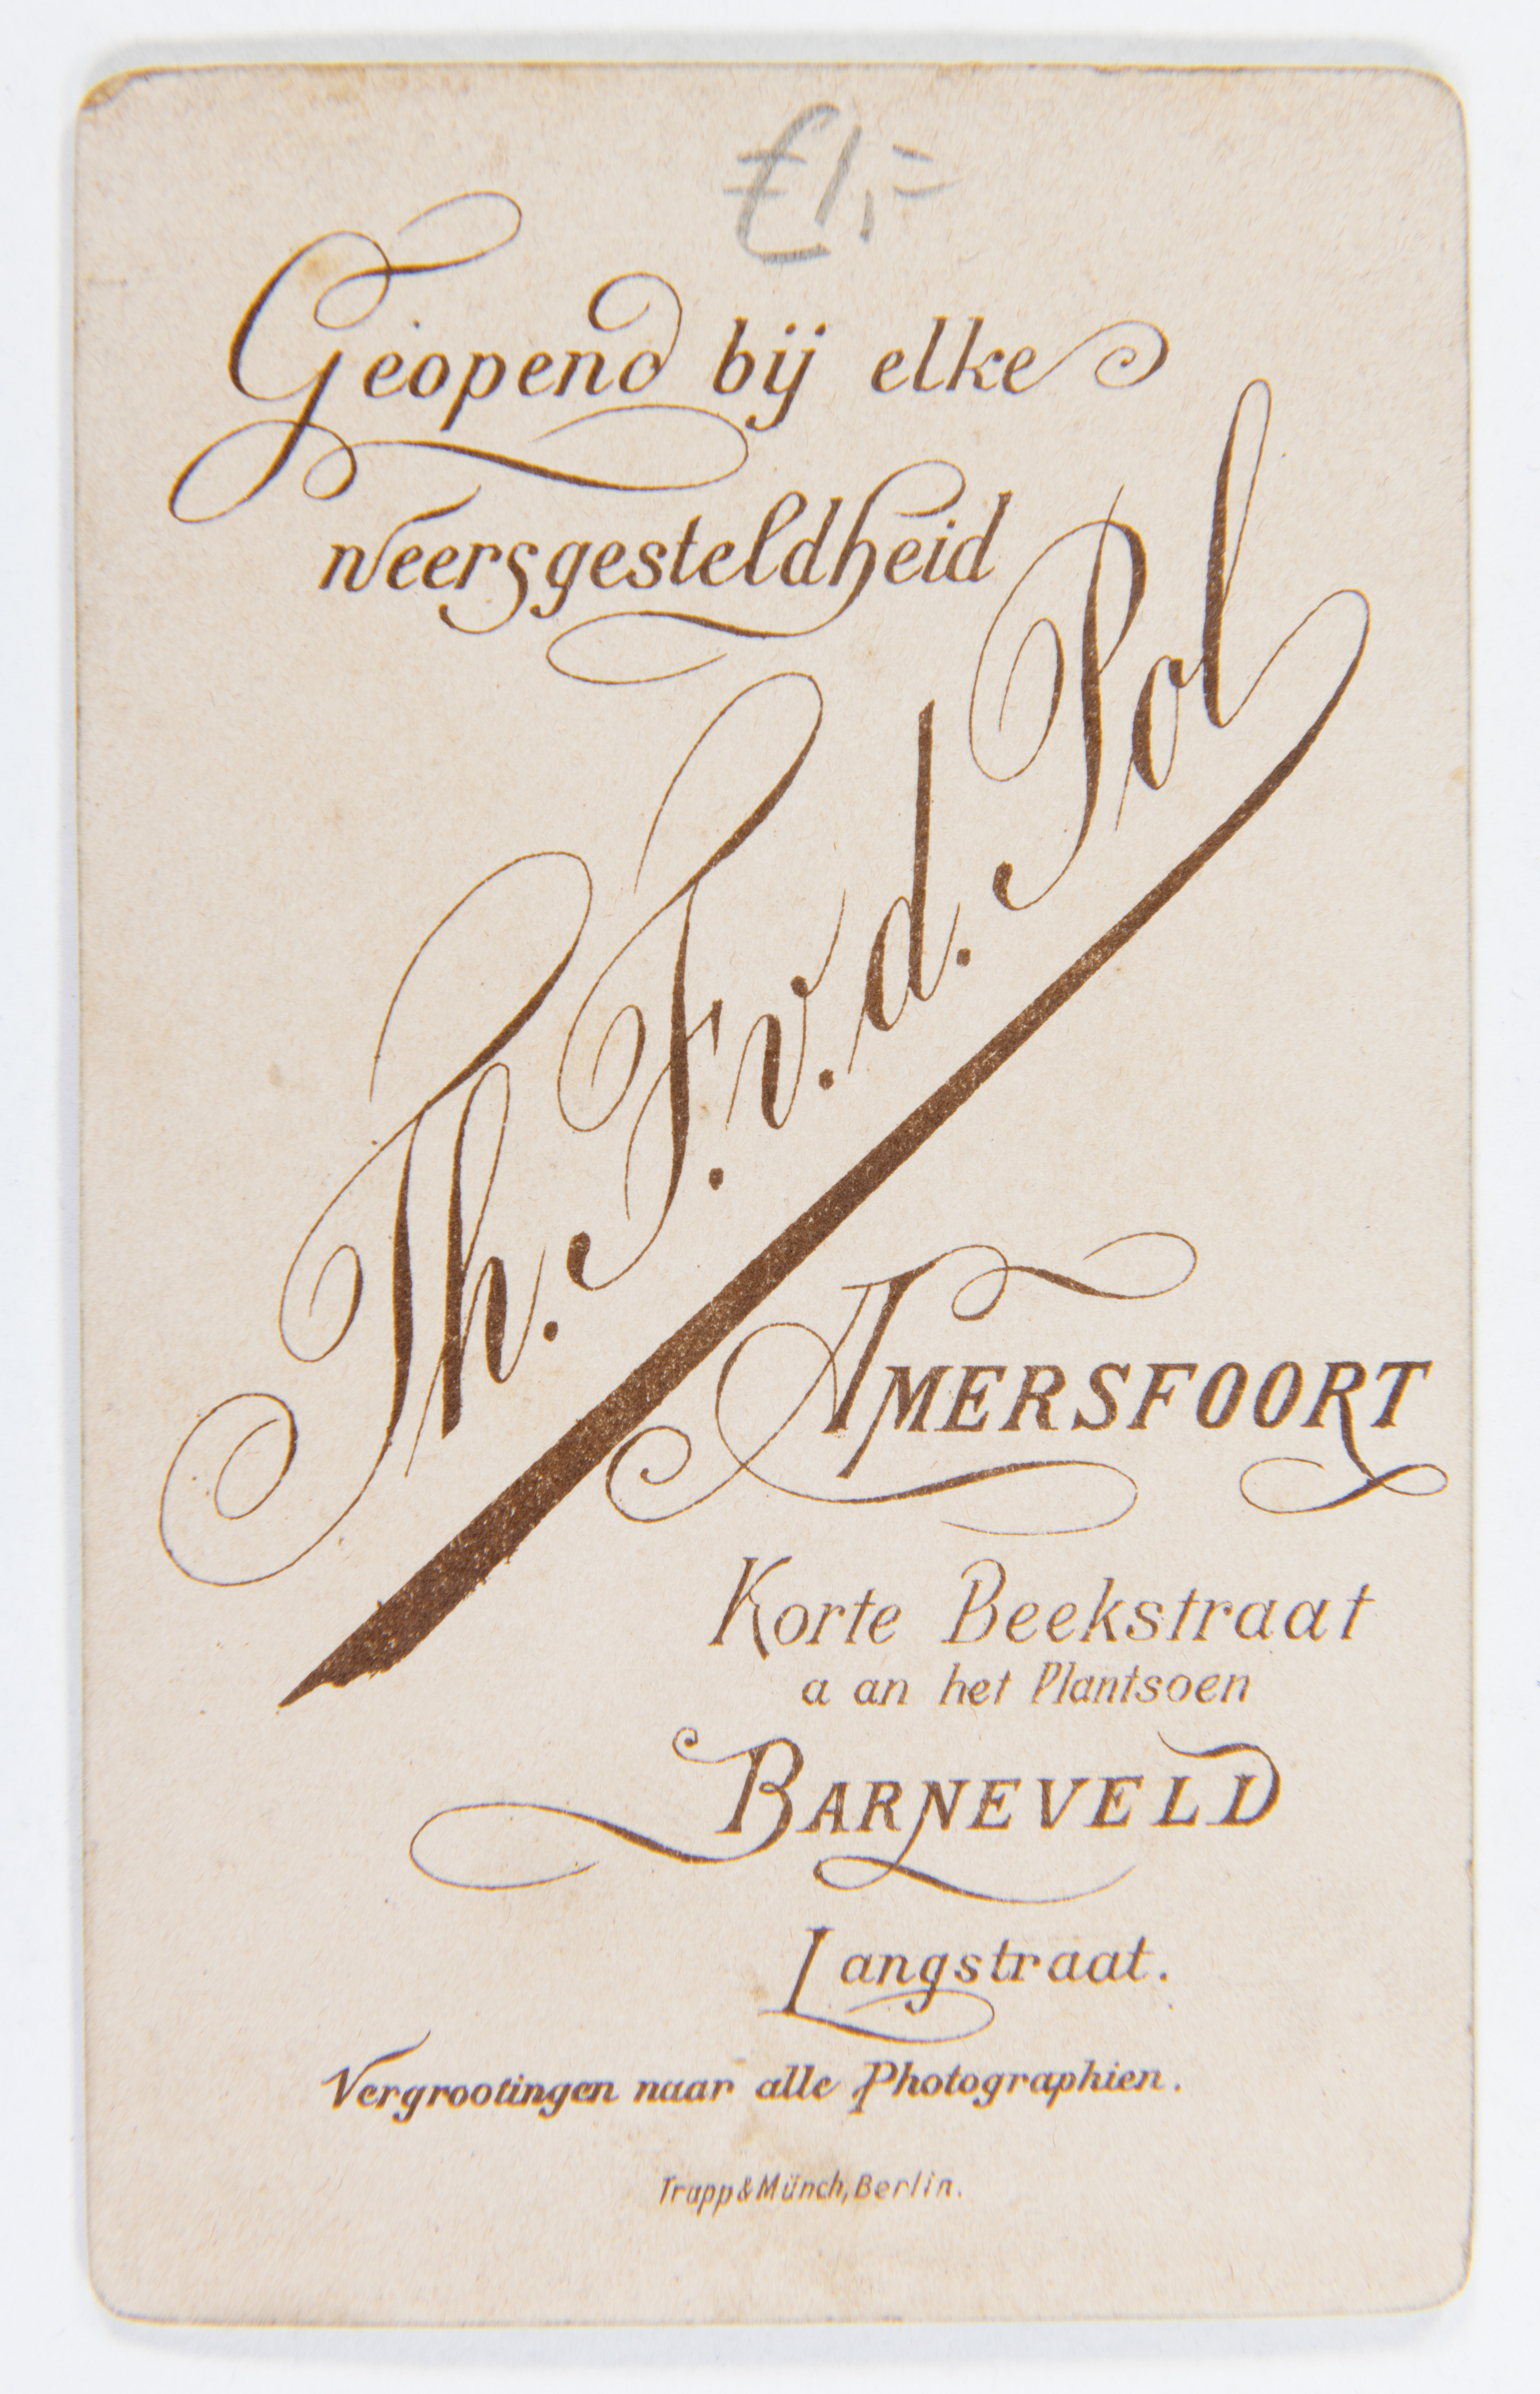 €1,=
Geopend bij elke
weersgesteldheid
Th. F. v. d. Pol
AMERSFOORT
Korte Beekstraat
a an het Plantsoen
BARNEVELD
Langstraat.
Vergrootingen naar alle Photographien.
Trapp & Münch, Berlin.